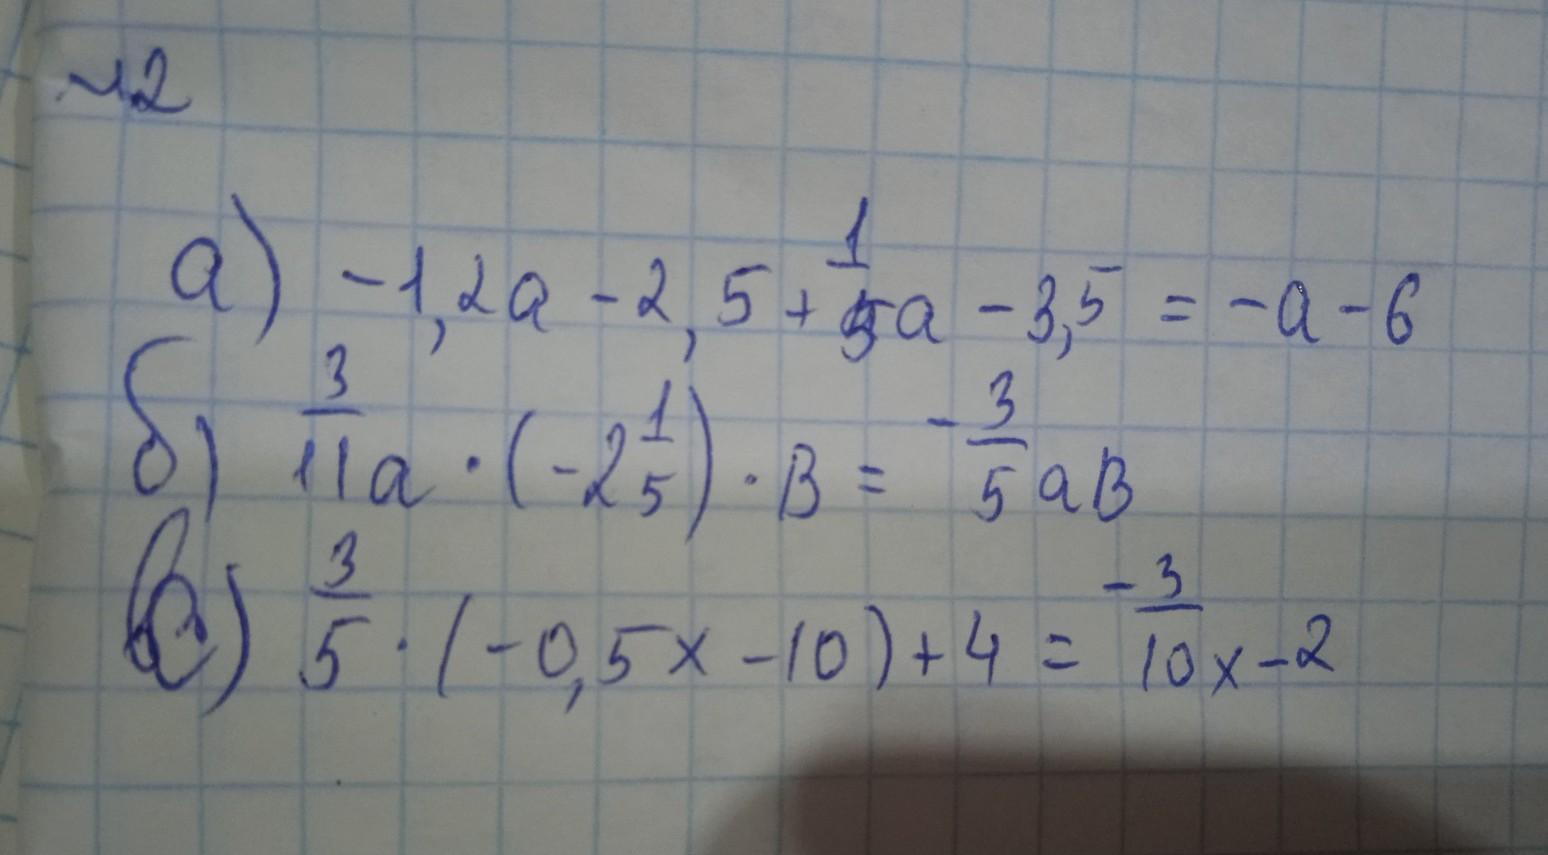 №2
а) -1,2a - 2,5 + 1/5 a - 3,5 = -a - 6
б) 3/11 a · (-2 1/5) · B = -3/5 aB
в) 3/5 · (-0,5x - 10) + 4 = -3/10 x - 2